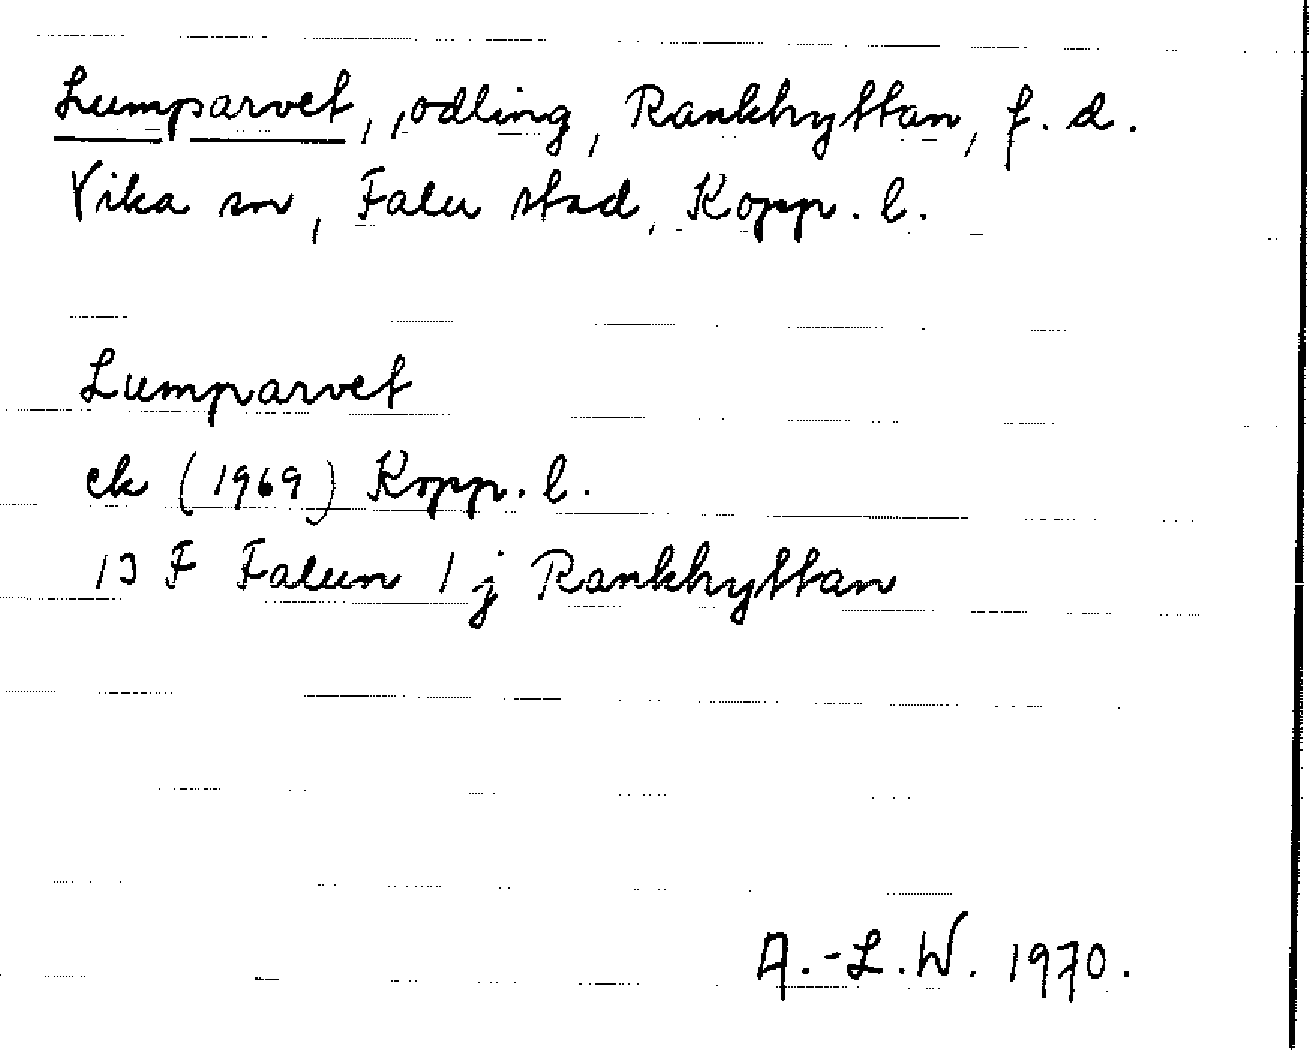 Lumparvet, odling, Rankhyttan, f. d.
Vika sn, Falu stad, Kopp. l.
Lumparvet
ek (1969) Kopp. l.
13 F Falun 1 j Rankhyttan
A.-L.W. 1970.